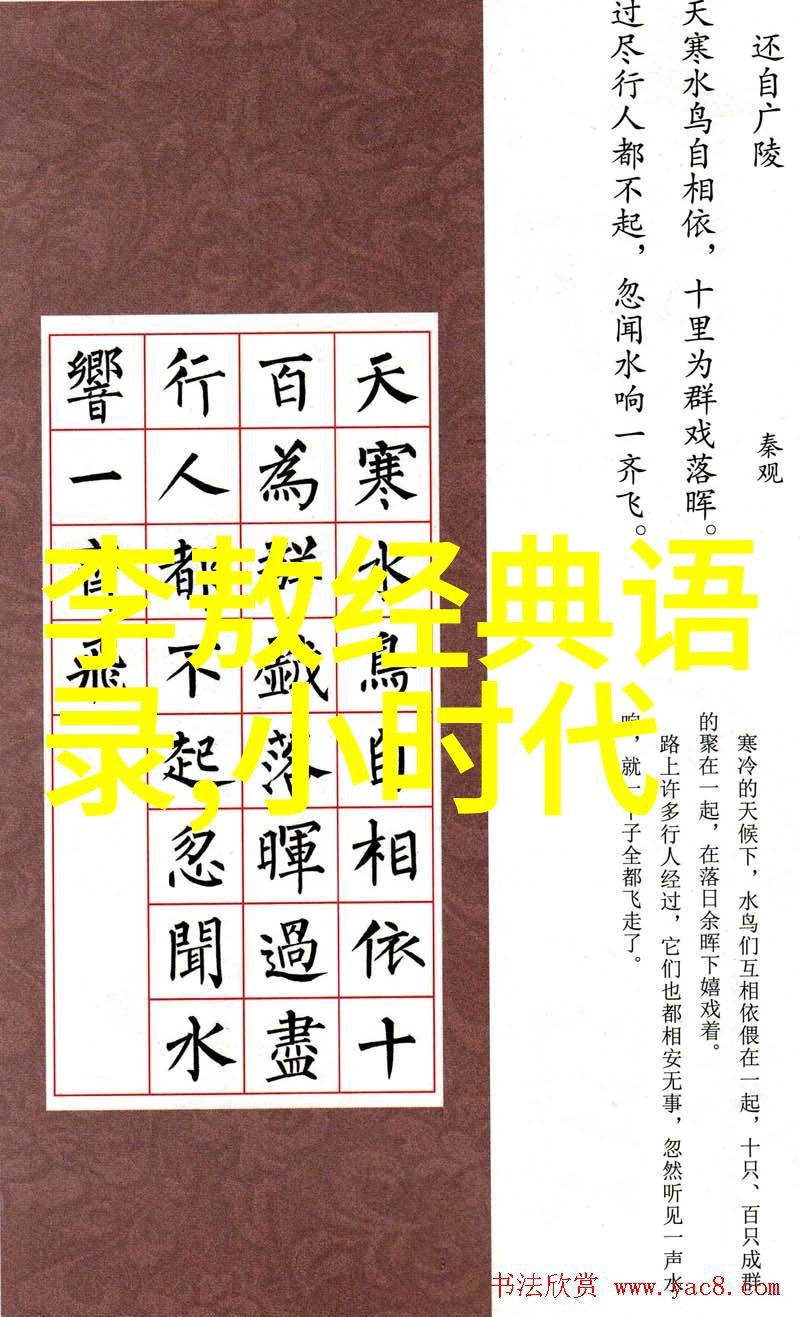 还自广陵
秦观
天寒水鸟自相依，十里为群戏落晖。
过尽行人都不起，忽闻水响一齐飞。
寒冷的天候下，水鸟们互相依偎在一起，十只、百只成群
的聚在一起，在落日余晖下嬉戏着。
路上许多行人经过，它们也都相安无事，忽然听见一声水
响，就一下子全都飞走了。
天寒水鳥自相依十
百為群戲落暉過盡
行人都不起忽聞水
響一齊飛
李敖经典语
录,小时代
书法欣赏 www.yac8.com